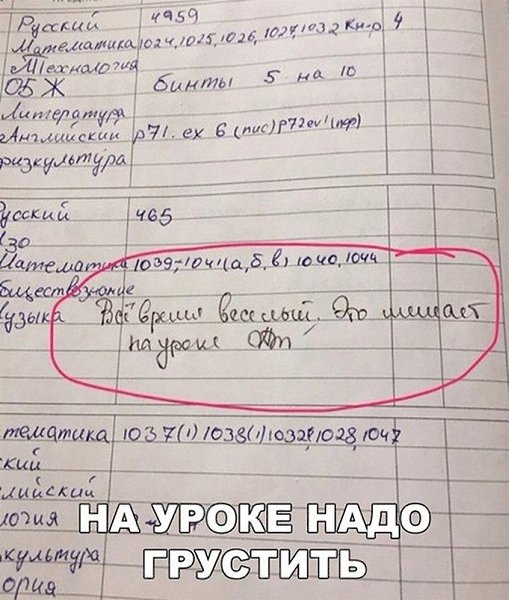 Русский 4959
Математика 1024, 1025, 1026, 1027, 1032 Кн-р 4
Технология
ОБЖ бинты 5 на 10
Литература
Английский p71. ex 6 (пис) p72 ex1 (пер)
физкультура
усский 465
ИЗО
Математика 1039,-1041(а,б,в) 1040,1044
бществознание
узыка Всё время веселый. Это мешает
на уроке
тематика 1037(1) 1038(1) 1032, 1028, 1047
ский
лийский
логия
культура
ория
НА УРОКЕ НАДО
ГРУСТИТЬ